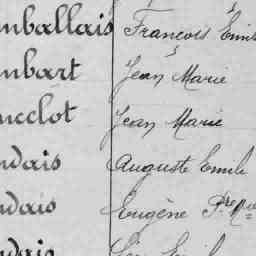 mballais François Emile
mbart Jean Marie
ncelot Jean Marie
ndais Auguste Emile
ndais Eugène P.re M.ie
ndais